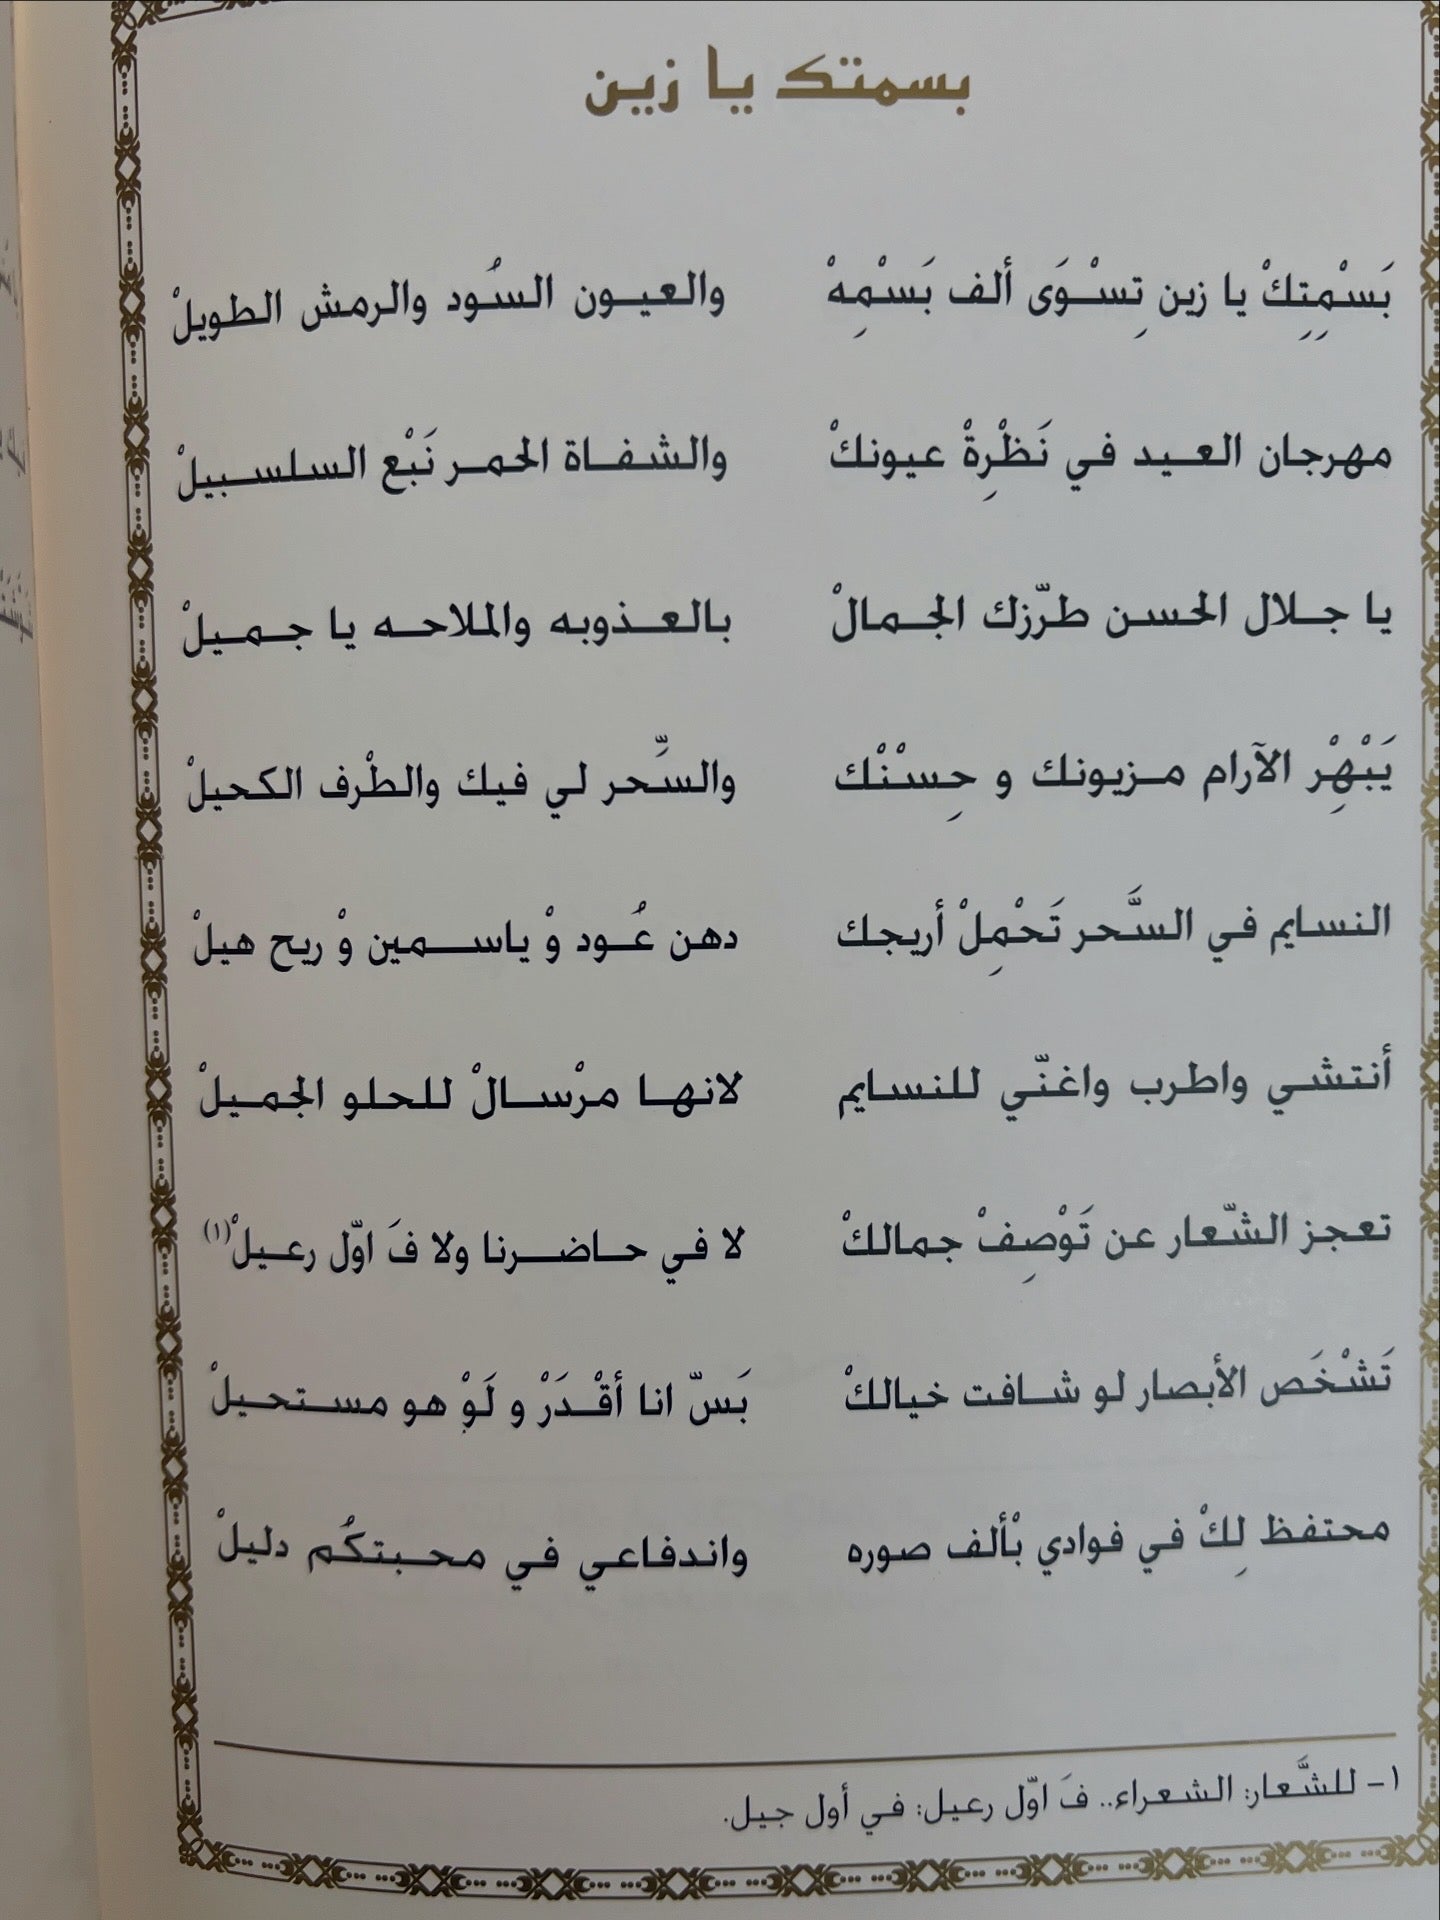 بسمتك يا زين
بَسْمِتِكْ يا زين تِسْوَى ألف بَسْمِهْ والعيون السُود والرمش الطويلْ
مهرجان العيد في نَظْرِةْ عيونكْ والشفاة الحمر نَبْع السلسبيلْ
يا جلال الحسن طرّزك الجمالْ بالعذوبه والملاحه يا جميلْ
يَبْهِرْ الآرام مزيونك و حِسْنْك والسِّحر لي فيك والطْرف الكحيلْ
النسايم في السَّحر تَحْمِلْ أريجك دهن عُود وْ ياسمين وْ ريح هيلْ
أنتشي واطرب واغنّي للنسايم لانها مرْسالْ للحلو الجميلْ
تعجز الشّعار عن تَوْصِفْ جمالكْ لا في حاضرنا ولا فَ اوّل رعيلْ(١)
تَشْخَص الأبصار لو شافت خيالكْ بَسّ انا أقْدَرْ و لَوْ هو مستحيلْ
محتفظ لِكْ في فوادي بْألف صوره واندفاعي في محبتكُم دليلْ
١- للشَّعار: الشعراء.. فَ اوّل رعيل: في أول جيل.